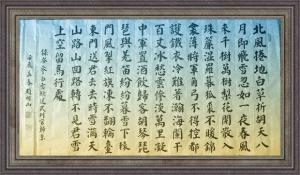 北風捲地白草折胡天八
月即飛雪忽如一夜春風
來千樹萬樹梨花開散入
珠簾濕羅幕狐裘不暖錦
衾薄將軍角弓不得控都
護鐵衣冷難着瀚海闌干
百丈冰愁雲慘淡萬里凝
中軍置酒飲歸客胡琴琵
琶與羌笛紛紛暮雪下轅
門風掣紅旗凍不翻輪臺
東門送君去去時雪滿天
山路山回路轉不見君雪
上空留馬行處